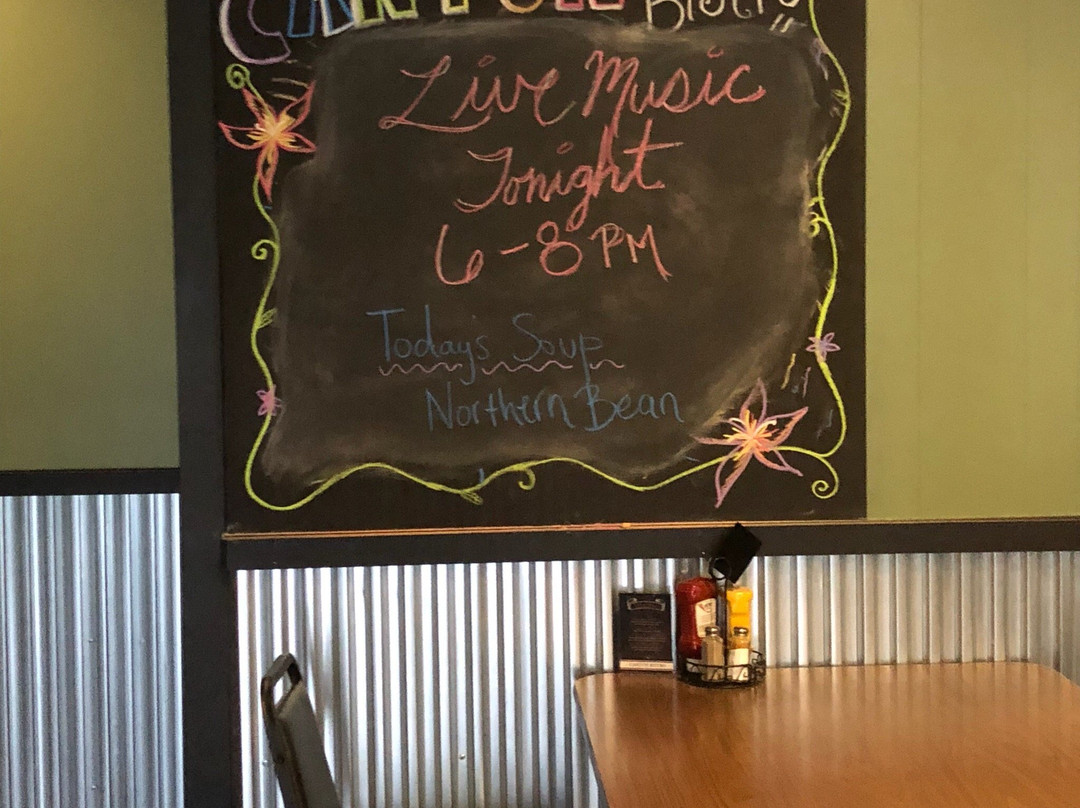 Bistro
Live Music
Tonight
6-8PM
Today's Soup
Northern Bean